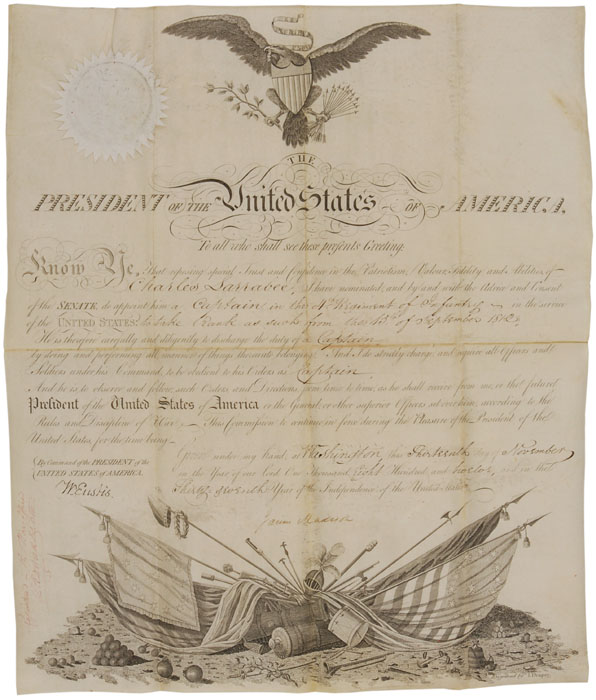 THE
PRESIDENT OF THE United States OF AMERICA.
To all who shall see these presents Greeting.
Know Ye, That reposing special Trust and Confidence in the Patriotism, Valour, Fidelity and Abilities of
Charles Larrabee, I have nominated, and by and with the Advice and Consent
of the SENATE, do appoint him a Captain in the Regiment of Infantry in the service
of the UNITED STATES: to take Rank as such from of September 1812.
He is therefore carefully and diligently to discharge the duty of a Captain
by doing and performing all manner of things thereunto belonging. And I do strictly charge, and require all Officers and
Soldiers under his Command, to be obedient to his Orders as Captain
And he is to observe and follow such Orders and Directions, from time to time, as he shall receive from me, or the future
President of the United States of America or the General or other superior Officers set over him, according to the
Rules and Discipline of War. This Commission to continue in force during the Pleasure of the President of the
United States, for the time being.
Given under my hand, at Washington, this day of November
in the Year of our Lord One Thousand Eight Hundred and twelve, and in the
Thirty seventh Year of the Independence of the United States.
By Command of the PRESIDENT of the
UNITED STATES OF AMERICA.
W. Eustis.
James Madison